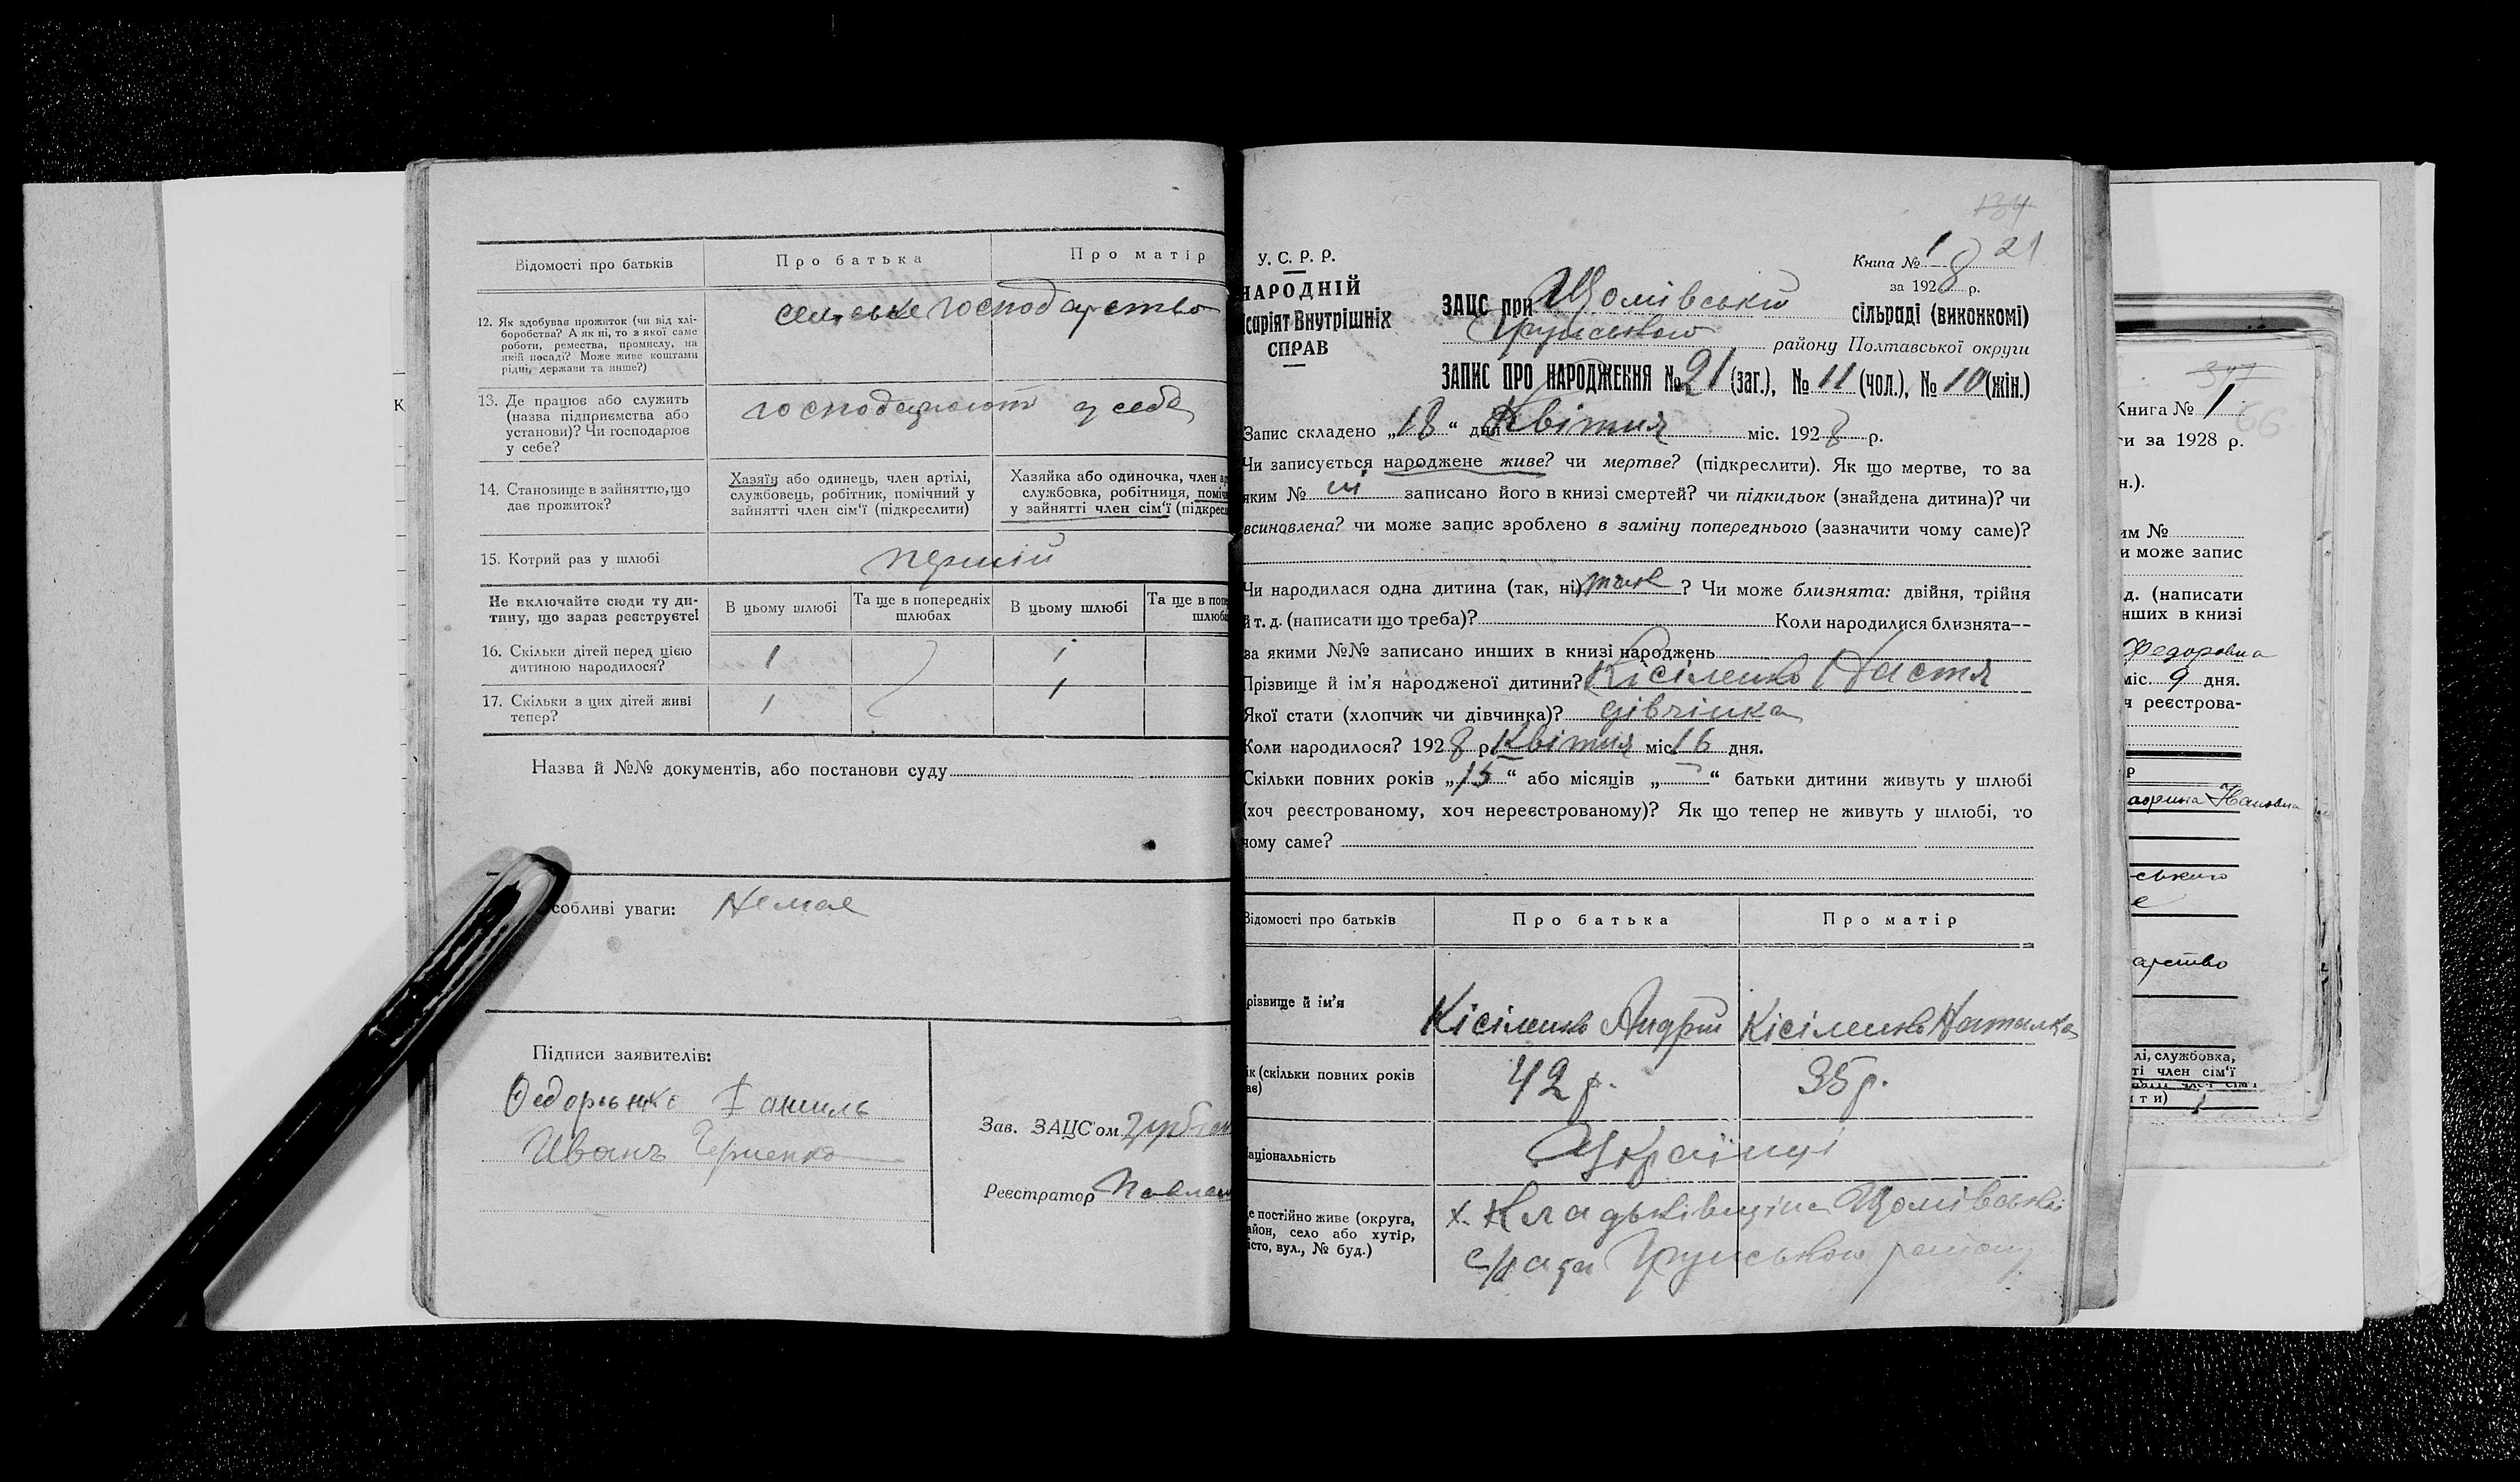 Відомості про батьків
Про батька
Про матір
12. Як здобуває прожиток (чи від хлі-
боробства? А як ні, то з якої саме
роботи, ремества, промислу, на
якій посаді? Може живе коштами
рідні, держави та инше?)
сельське господарство
13. Де працює або служить
(назва підприємства або
установи)? Чи господарює
у себе?
господарюють у себе
14. Становище в зайняттю, що
дає прожиток?
Хазяїн або одинець, член артілі,
службовець, робітник, помічний у
зайнятті член сім'ї (підкреслити)
Хазяйка або одиночка, член ар
службовка, робітниця, поміч
у зайнятті член сім'ї (підкресл
15. Котрий раз у шлюбі
перший
Не включайте сюди ту ди-
тину, що зараз реєструєте!
В цьому шлюбі
Та ще в попередніх
шлюбах
В цьому шлюбі
Та ще в попе
шлюба
16. Скільки дітей перед цією
дитиною народилося?
1
1
17. Скільки з цих дітей живі
тепер?
1
1
Назва й №№ документів, або постанови суду
собливі уваги: Немає
Підписи заявителів:
Федоренко Даниль
Иванъ Черненко
Зав. ЗАЦС'ом
Реєстратор
134
У. С. Р. Р.
НАРОДНІЙ
ісаріят Внутрішніх
СПРАВ
Книга № 1 21
за 1928 р.
ЗАЦС при сільраді (виконкомі)
Грунського району Полтавської округи
ЗАПИС ПРО НАРОДЖЕННЯ № 21 (заг.), № 11 (чол.), № 10 (жін.)
Запис складено „18" дня Квітня міс. 1928 р.
Чи записується народжене живе? чи мертве? (підкреслити). Як що мертве, то за
яким № записано його в книзі смертей? чи підкидьок (знайдена дитина)? чи
всиновлена? чи може запис зроблено в заміну попереднього (зазначити чому саме)?
Чи народилася одна дитина (так, ні) так ? Чи може близнята: двійня, трійня
й т. д. (написати що треба)? Коли народилися близнята—
за якими №№ записано инших в книзі народжень
Прізвище й ім'я народженої дитини? Кісіленко Настя
Якої стати (хлопчик чи дівчинка)? дівчінка
Коли народилося? 1928 р. Квітня міс. 16 дня.
Скільки повних років „15" або місяців „—" батьки дитини живуть у шлюбі
(хоч реєстрованому, хоч нереєстрованому)? Як що тепер не живуть у шлюбі, то
чому саме?
Відомості про батьків
Про батька
Про матір
різвище й ім'я
Кісіленко Андрій
Кісіленко Наталка
ік (скільки повних років
ає)
42 р.
35 р.
аціональність
Українці
е постійно живе (округа,
айон, село або хутір,
істо, вул., № буд.)
х.
с/рада Грунського району
347
Книга № 1
66
ги за 1928 р.
н.).
им №
и може запис
д. (написати
нших в книзі
Федоровна
міс. 9 дня.
я реєстрова-
р
ського
арство
лі, службовка,
ті член сім'ї
ити)